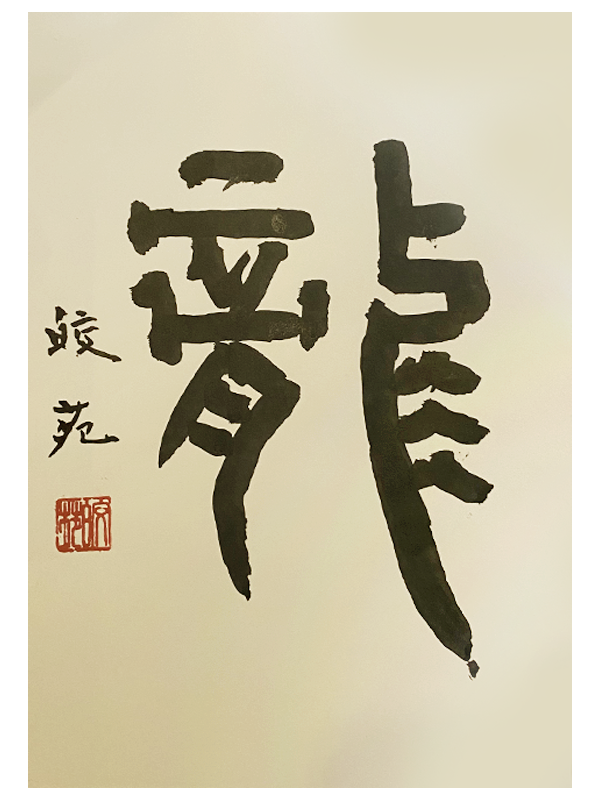 龍
皎苑